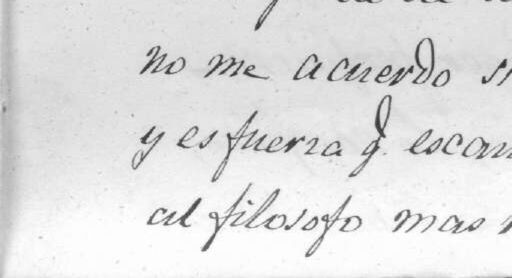 no me acuerdo si
y es fuerza q. escan
al filosofo mas